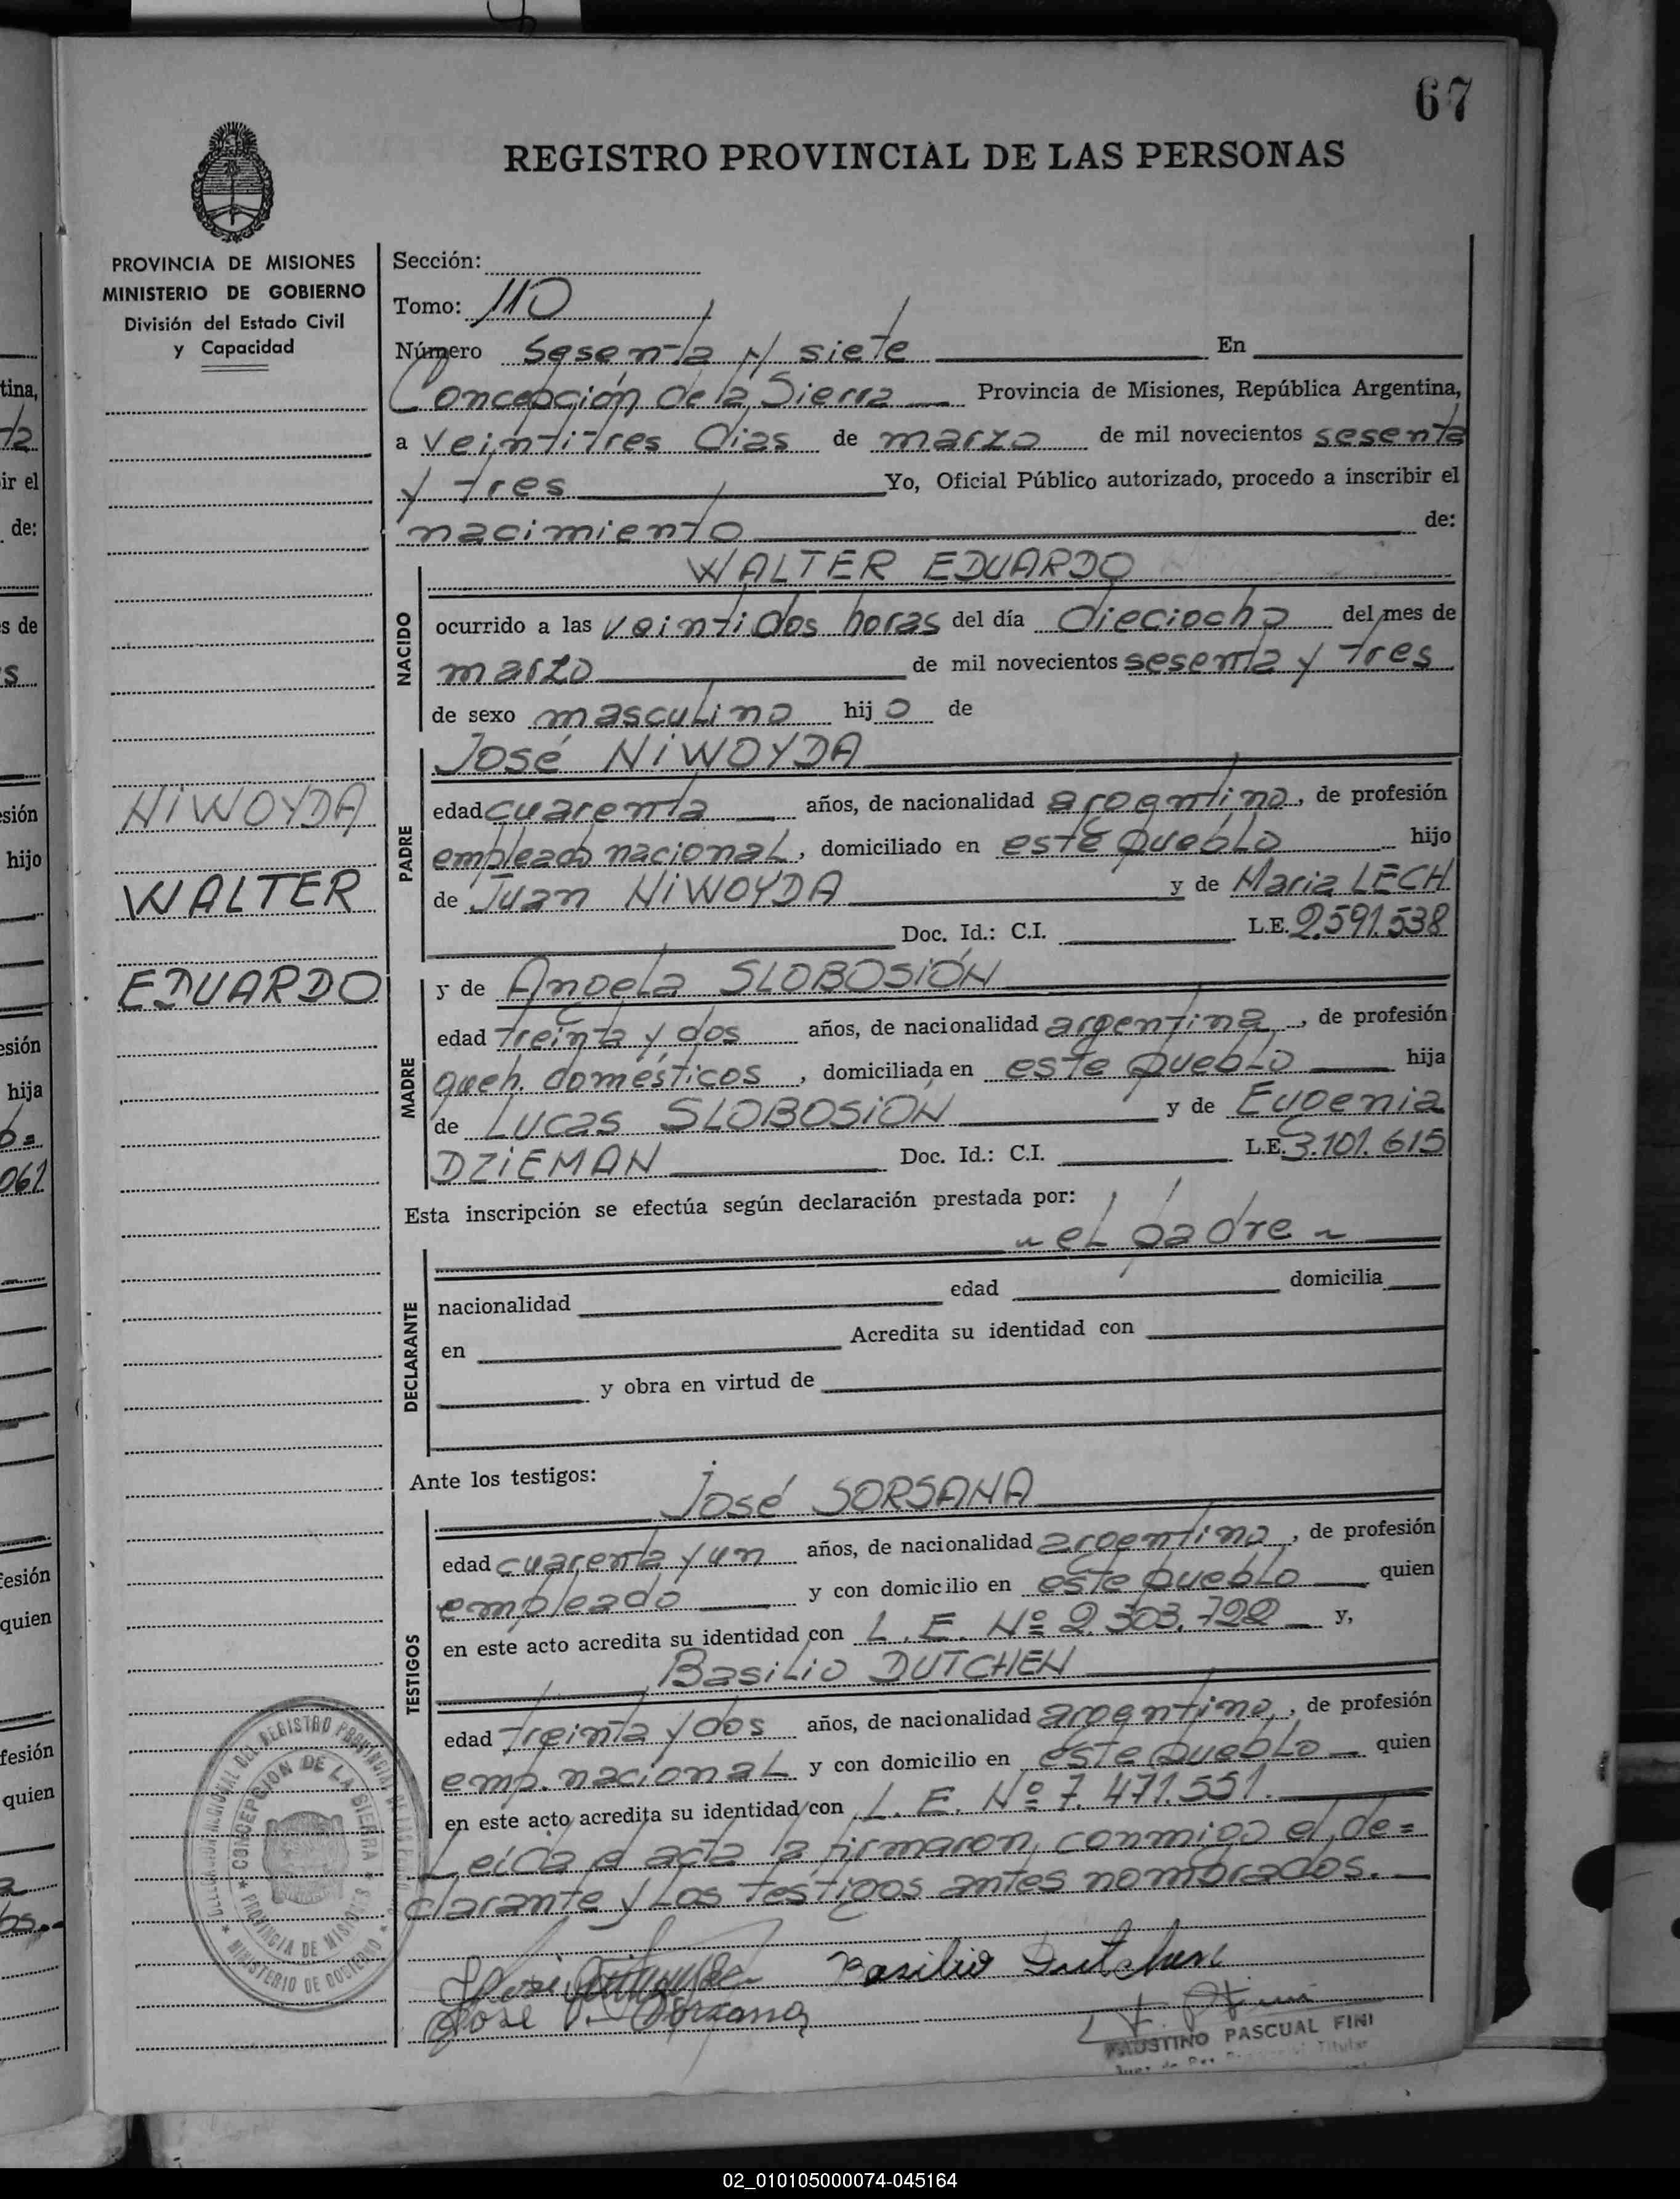 67
REGISTRO PROVINCIAL DE LAS PERSONAS
PROVINCIA DE MISIONES
MINISTERIO DE GOBIERNO
División del Estado Civil
y Capacidad
Sección:
Tomo: 110
Número Sesenta y siete En
Concepción de la Sierra Provincia de Misiones, República Argentina,
a veintitres dias de marzo de mil novecientos sesenta
y tres Yo, Oficial Público autorizado, procedo a inscribir el
nacimiento de:
NACIDO
WALTER EDUARDO
ocurrido a las veintidos horas del día dieciocho del mes de
marzo de mil novecientos sesenta y tres
de sexo masculino hijo de
PADRE
José NiWOYDA
edad cuarenta años, de nacionalidad argentino, de profesión
empleado nacional, domiciliado en este pueblo hijo
de Juan NiWOYDA y de Maria LECH
Doc. Id.: C.I. L.E. 2.591.538
NiWOYDA
WALTER
EDUARDO
MADRE
y de Angela SLOBOSiÓN
edad treinta y dos años, de nacionalidad argentina, de profesión
queh. domésticos, domiciliada en este pueblo hija
de Lucas SLOBOSiÓN y de Eugenia
DZiEMAN Doc. Id.: C.I. L.E. 3.101.615
Esta inscripción se efectúa según declaración prestada por:
el padre
DECLARANTE
nacionalidad edad domicilia
en Acredita su identidad con
y obra en virtud de
Ante los testigos:
TESTIGOS
José SORSANA
edad cuarenta y un años, de nacionalidad argentino, de profesión
empleado y con domicilio en este pueblo quien
en este acto acredita su identidad con L.E. Nº 2.303.722 y,
Basilio DUTCHEN
edad treinta y dos años, de nacionalidad argentino, de profesión
emp. nacional y con domicilio en este pueblo quien
en este acto acredita su identidad con L.E. Nº 7.471.551.
Leida el acta la firmaron, conmigo el de=
clarante y los testigos antes nombrados.
DELEGACION REGIONAL DEL REGISTRO PROVINCIAL DE LAS PERSONAS
CONCEPCION DE LA SIERRA
PROVINCIA DE MISIONES
MINISTERIO DE GOBIERNO
José
Basilio Dutchen
José V. Sorsana
FAUSTINO PASCUAL FINI
Titular
tina,
ir el
de:
s de
esión
hijo
esión
hija
061
fesión
quien
fesión
quien
02_010105000074-045164